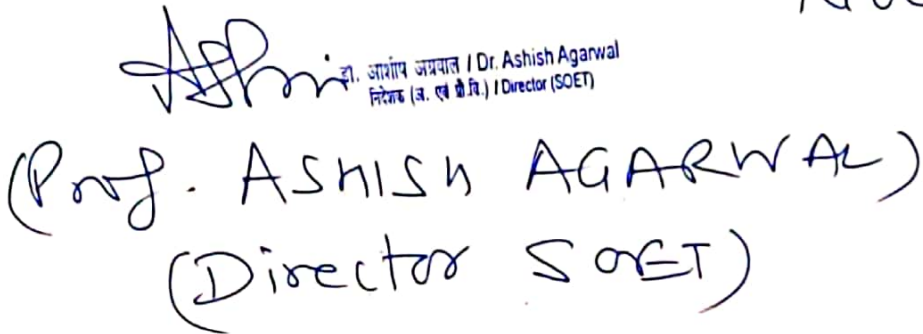 डा. आशीष अग्रवाल / Dr. Ashish Agarwal
निदेशक (अ. एवं प्रौ.वि.) / Director (SOET)
(Prof. ASHISH AGARWAL)
(Director SOET)